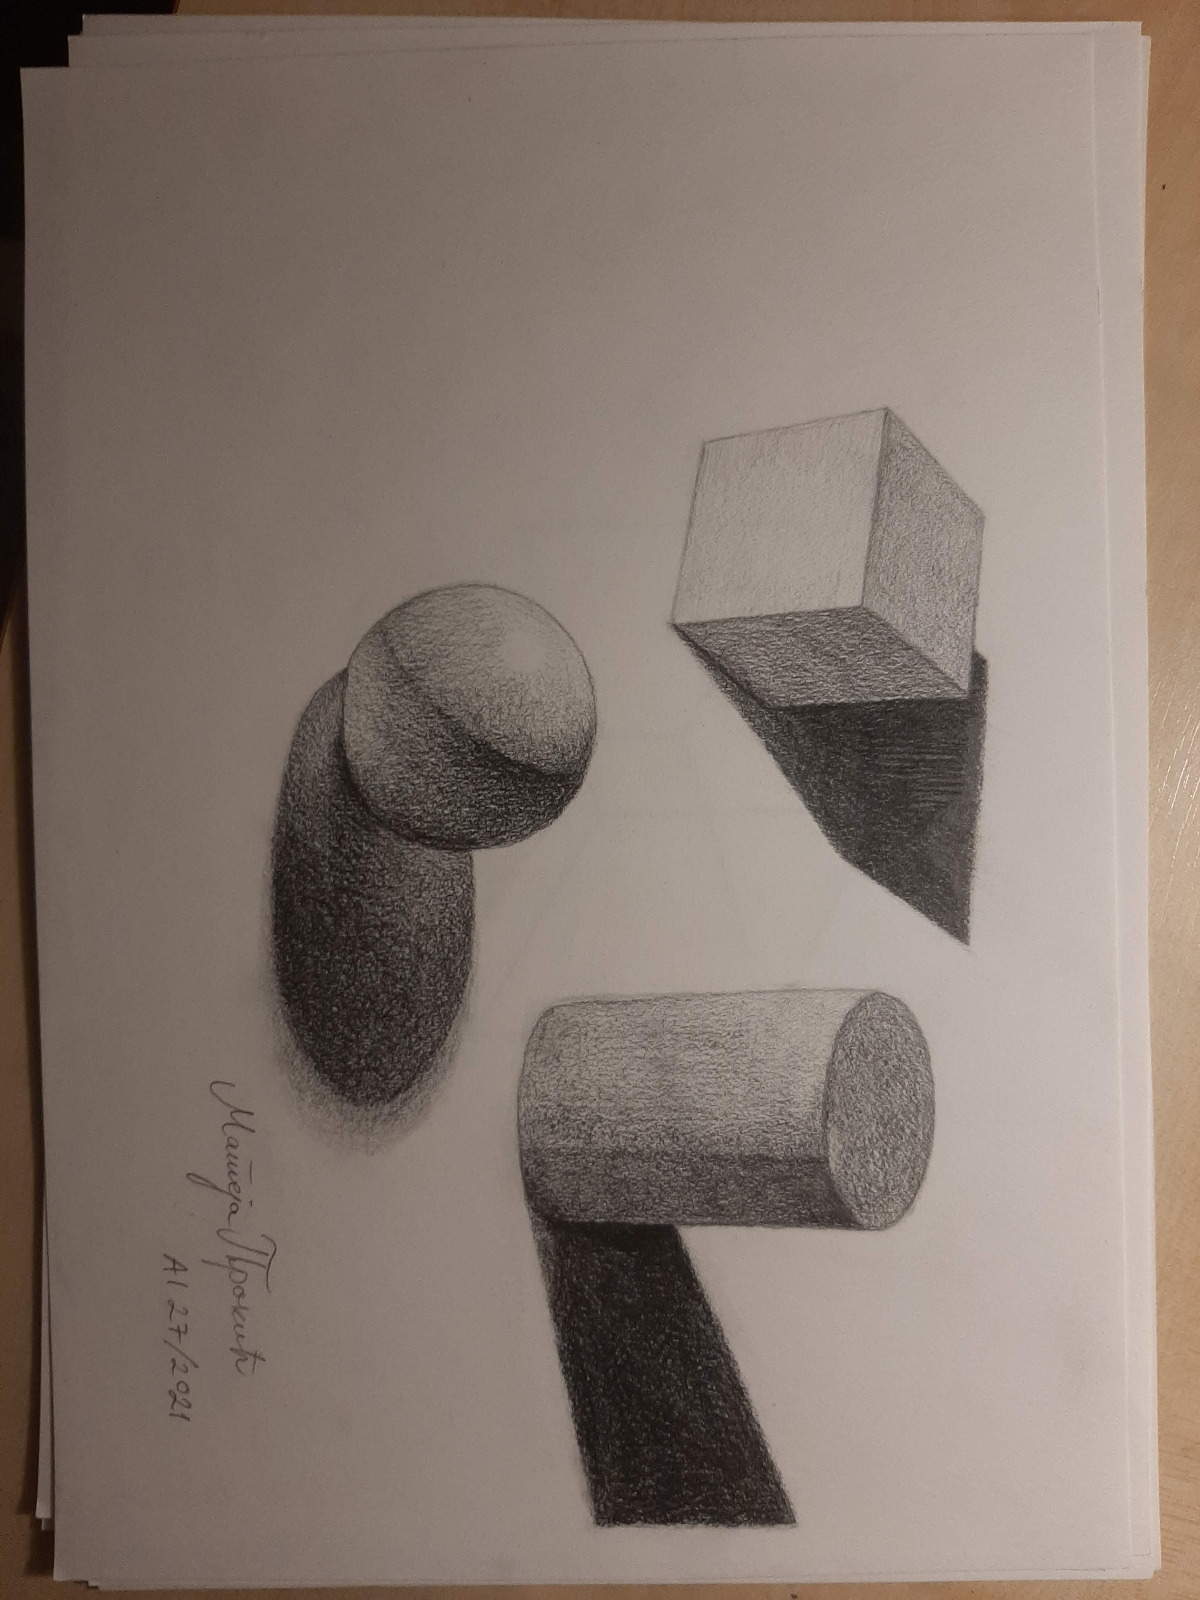 Матеја Прокић
AI 27/2021